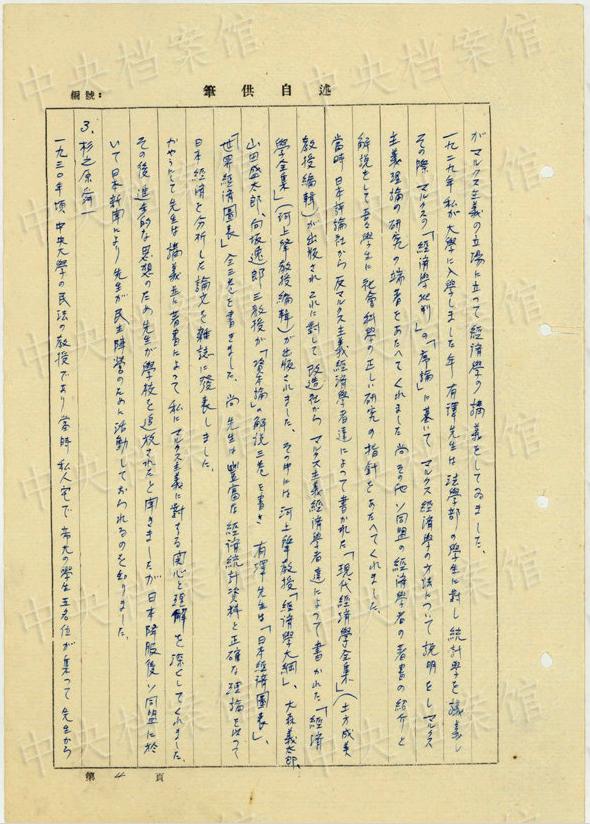 述自供筆
編號：
がマルクス主義の立場に立って経済學の講義をしてゐました、
一九二九年 私が大學に入學しました年 有澤先生は 法學部の學生に対し 統計學を 講義し
その際 マルクスの「経済學批判」の「序論」に基いて マルクス経済學の方法について 説明をし マルクス
主義理論の研究の端者をあたへてくれました 尚 その他 ソ同盟の経済學者の著書の紹介と
解説をして 吾々學生に 社會科學の正しい研究の指針をあたへてくれました。
當時 日本評論社から 反マルクス主義経済學者達によって書かれた「現代経済學全集」(土方成美
教授編輯)が出版され これに対して 改造社から マルクス主義経済學者達によって 書かれた「経済
學全集」(河上肇教授編輯)が出版されました、その中には 河上肇教授「経済學大綱」、大森義太郎、
山田盛太郎、向坂逸郎三教授が「資本論」の解説三巻を書き 有澤先生は「日本経済圖表」、
「世界経済圖表」全三巻を書きました、尚 先生は 豐富な経済統計資料と正確な理論を以って
日本経済を分析した論文を雑誌に発表しました。
かやうにして 先生は 講義並に著書によって 私にマルクス主義に対する関心と理解を深くしてくれました、
その後 進歩的な思想のため 先生が學校を追放されたと聞きましたが 日本降服後 ソ同盟に於
いて 日本新聞により 先生が民主陣營のために活動しておられるのを知りました。
3、杉之原舜一
一九三〇年頃 中央大學の民法の教授であり 當時 私人宅で 帝大の學生五名位が集って 先生から
第 4 頁
中央档案馆